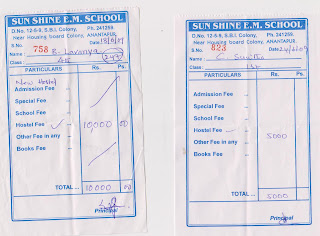 SUN SHINE E.M. SCHOOL
D.No. 12-5-9, S.B.I. Colony, Ph. 241259,
Near Housing board Colony, ANANTAPUR.
S.No. 758 Date
Name : B. Lavanya
Class :
PARTICULARS Rs. Ps.
New Hostel
Admission Fee
Special Fee
School Fee
Hostel Fee 10,000 00
Other Fee in any
Books Fee
TOTAL ... 10000 00
Principal
SUN SHINE E.M. SCHOOL
D.No. 12-5-9, S.B.I. Colony, Ph. 241259,
Near Housing board Colony, ANANTAPUR.
S.No. 823 Date
Name :
Class :
PARTICULARS Rs. Ps.
Admission Fee
Special Fee
School Fee
Hostel Fee
Other Fee in any 5000
Books Fee
TOTAL ... 5000
Principal